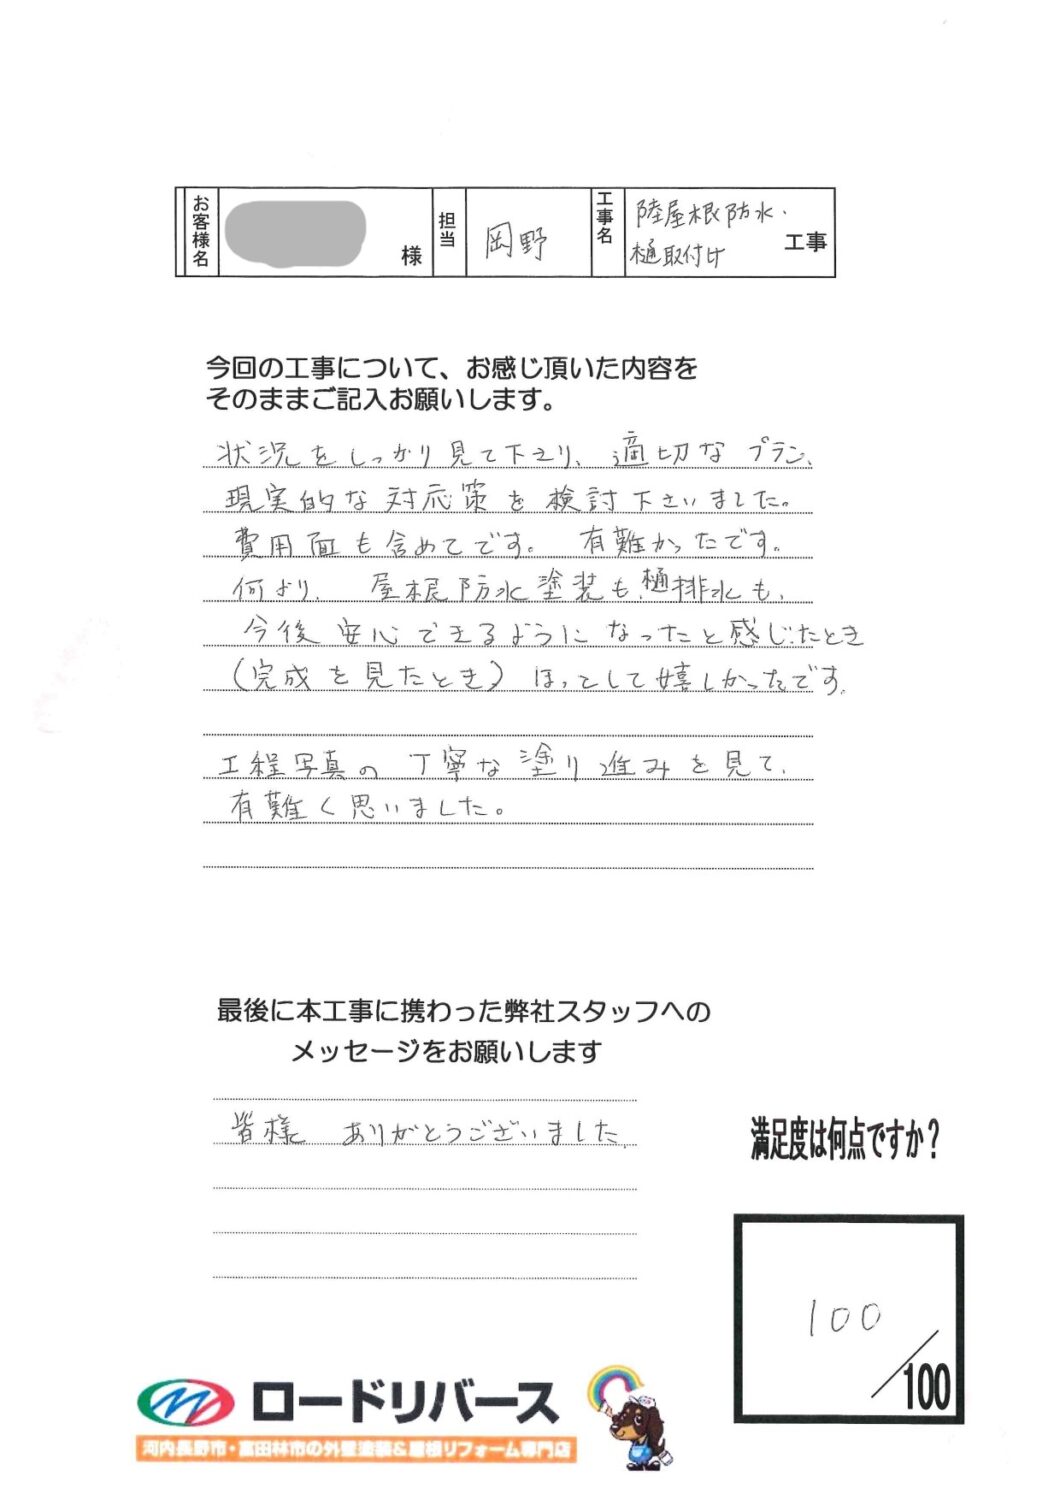 お客様名
様
担当
岡野
工事名
陸屋根防水・
樋取付け
工事
今回の工事について、お感じ頂いた内容を
そのままご記入お願いします。
状況をしっかり見て下さり、適切なプラン、
現実的な対応策を検討下さいました。
費用面も含めてです。 有難かったです。
何より、 屋根防水塗装も、樋排水も、
今後安心できるようになったと感じたとき
(完成を見たとき)ほっとして嬉しかったです。
工程写真の丁寧な塗り進みを見て、
有難く思いました。
最後に本工事に携わった弊社スタッフへの
メッセージをお願いします
皆様 ありがとうございました。
満足度は何点ですか?
100
/100
ロードリバース
河内長野市・富田林市の外壁塗装&屋根リフォーム専門店